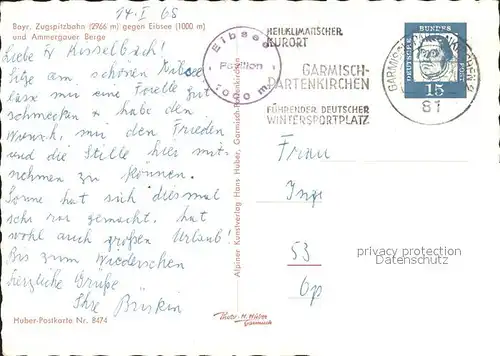 14. I 65
Bayr. Zugspitzbahn (2966 m) gegen Eibsee (1000 m)
und Ammergauer Berge
Liebe Fr Kisselbach!
Sitze am schönen Eibsee
lass mir eine Forelle gut
schmecken & habe den
Wunsch, mir den Frieden
und die Stille hier mit-
nehmen zu können.
Sonne hat sich diesmal
sehr rar gemacht, hat
wohl auch großen Urlaub!
Bis zum Wiedersehen
herzliche Grüße
Ihre
Huber-Postkarte Nr. 8474
Eibsee
Pavillon
1000 m
HEILKLIMATISCHER
KURORT
GARMISCH-
PARTENKIRCHEN
FÜHRENDER DEUTSCHER
WINTERSPORTPLATZ
GARMISCH-PARTENKIRCHEN 2
81
DEUTSCHE BUNDESPOST
15
Alpiner Kunstverlag Hans Huber, Garmisch-Partenkirchen
Frau
53
privacy protection
watermark
Photo-H. Huber
Garmisch